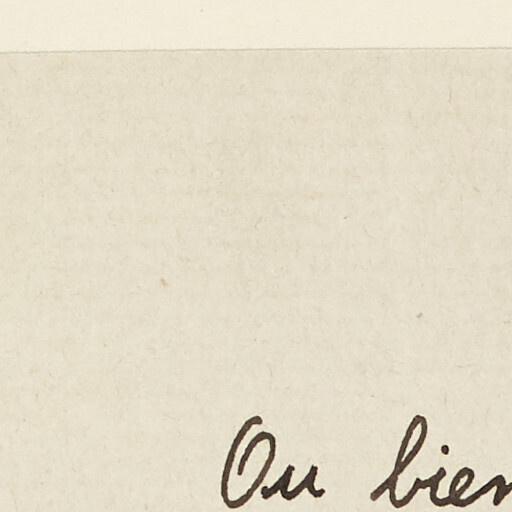 Ou bien